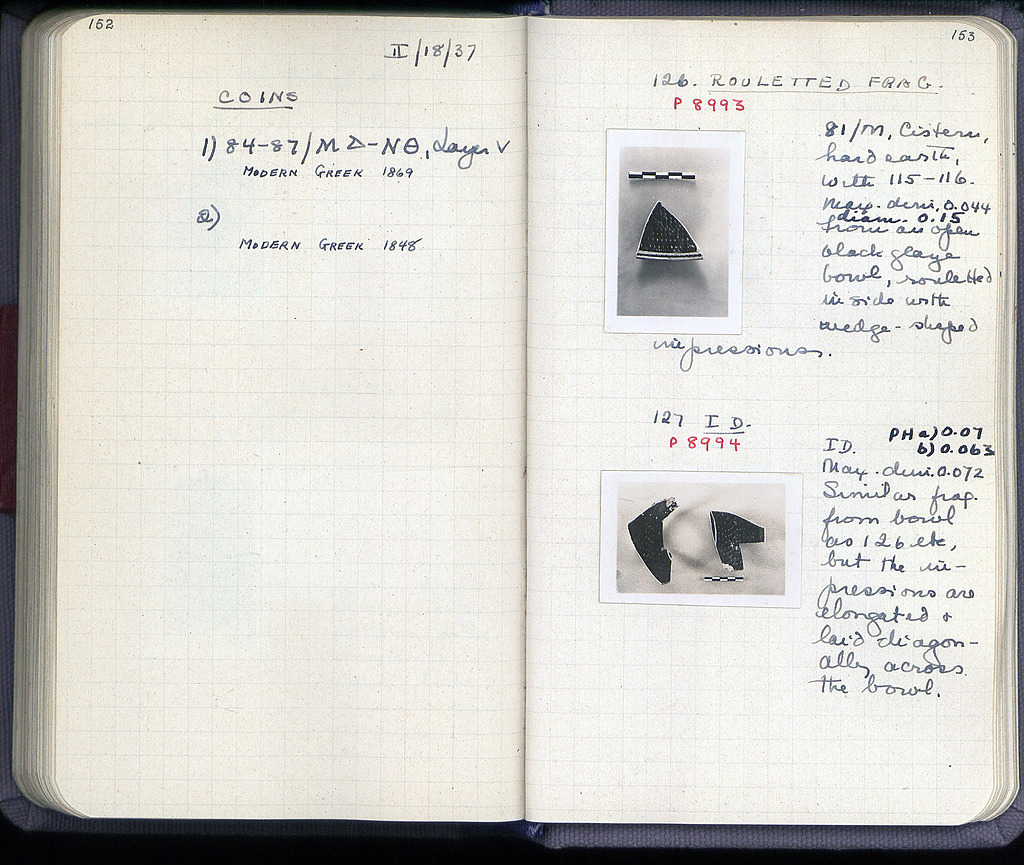 152
II/18/37
COINS
1) 84-87/ΜΔ-ΝΘ, Layer V
MODERN GREEK 1869
2)
MODERN GREEK 1848
153
126. ROULETTED FRAG.
P 8993
81/Μ, Cistern,
hard earth,
with 115-116.
Max. dim. 0.044
diam. 0.15
from an open
black glaze
bowl, rouletted
inside with
wedge-shaped
impressions.
127 ID.
P 8994
PH a) 0.07
b) 0.063
ID.
Max. dim. 0.072
Similar frag.
from bowl
as 126 etc,
but the im-
pressions are
elongated &
laid diagon-
ally across
the bowl.